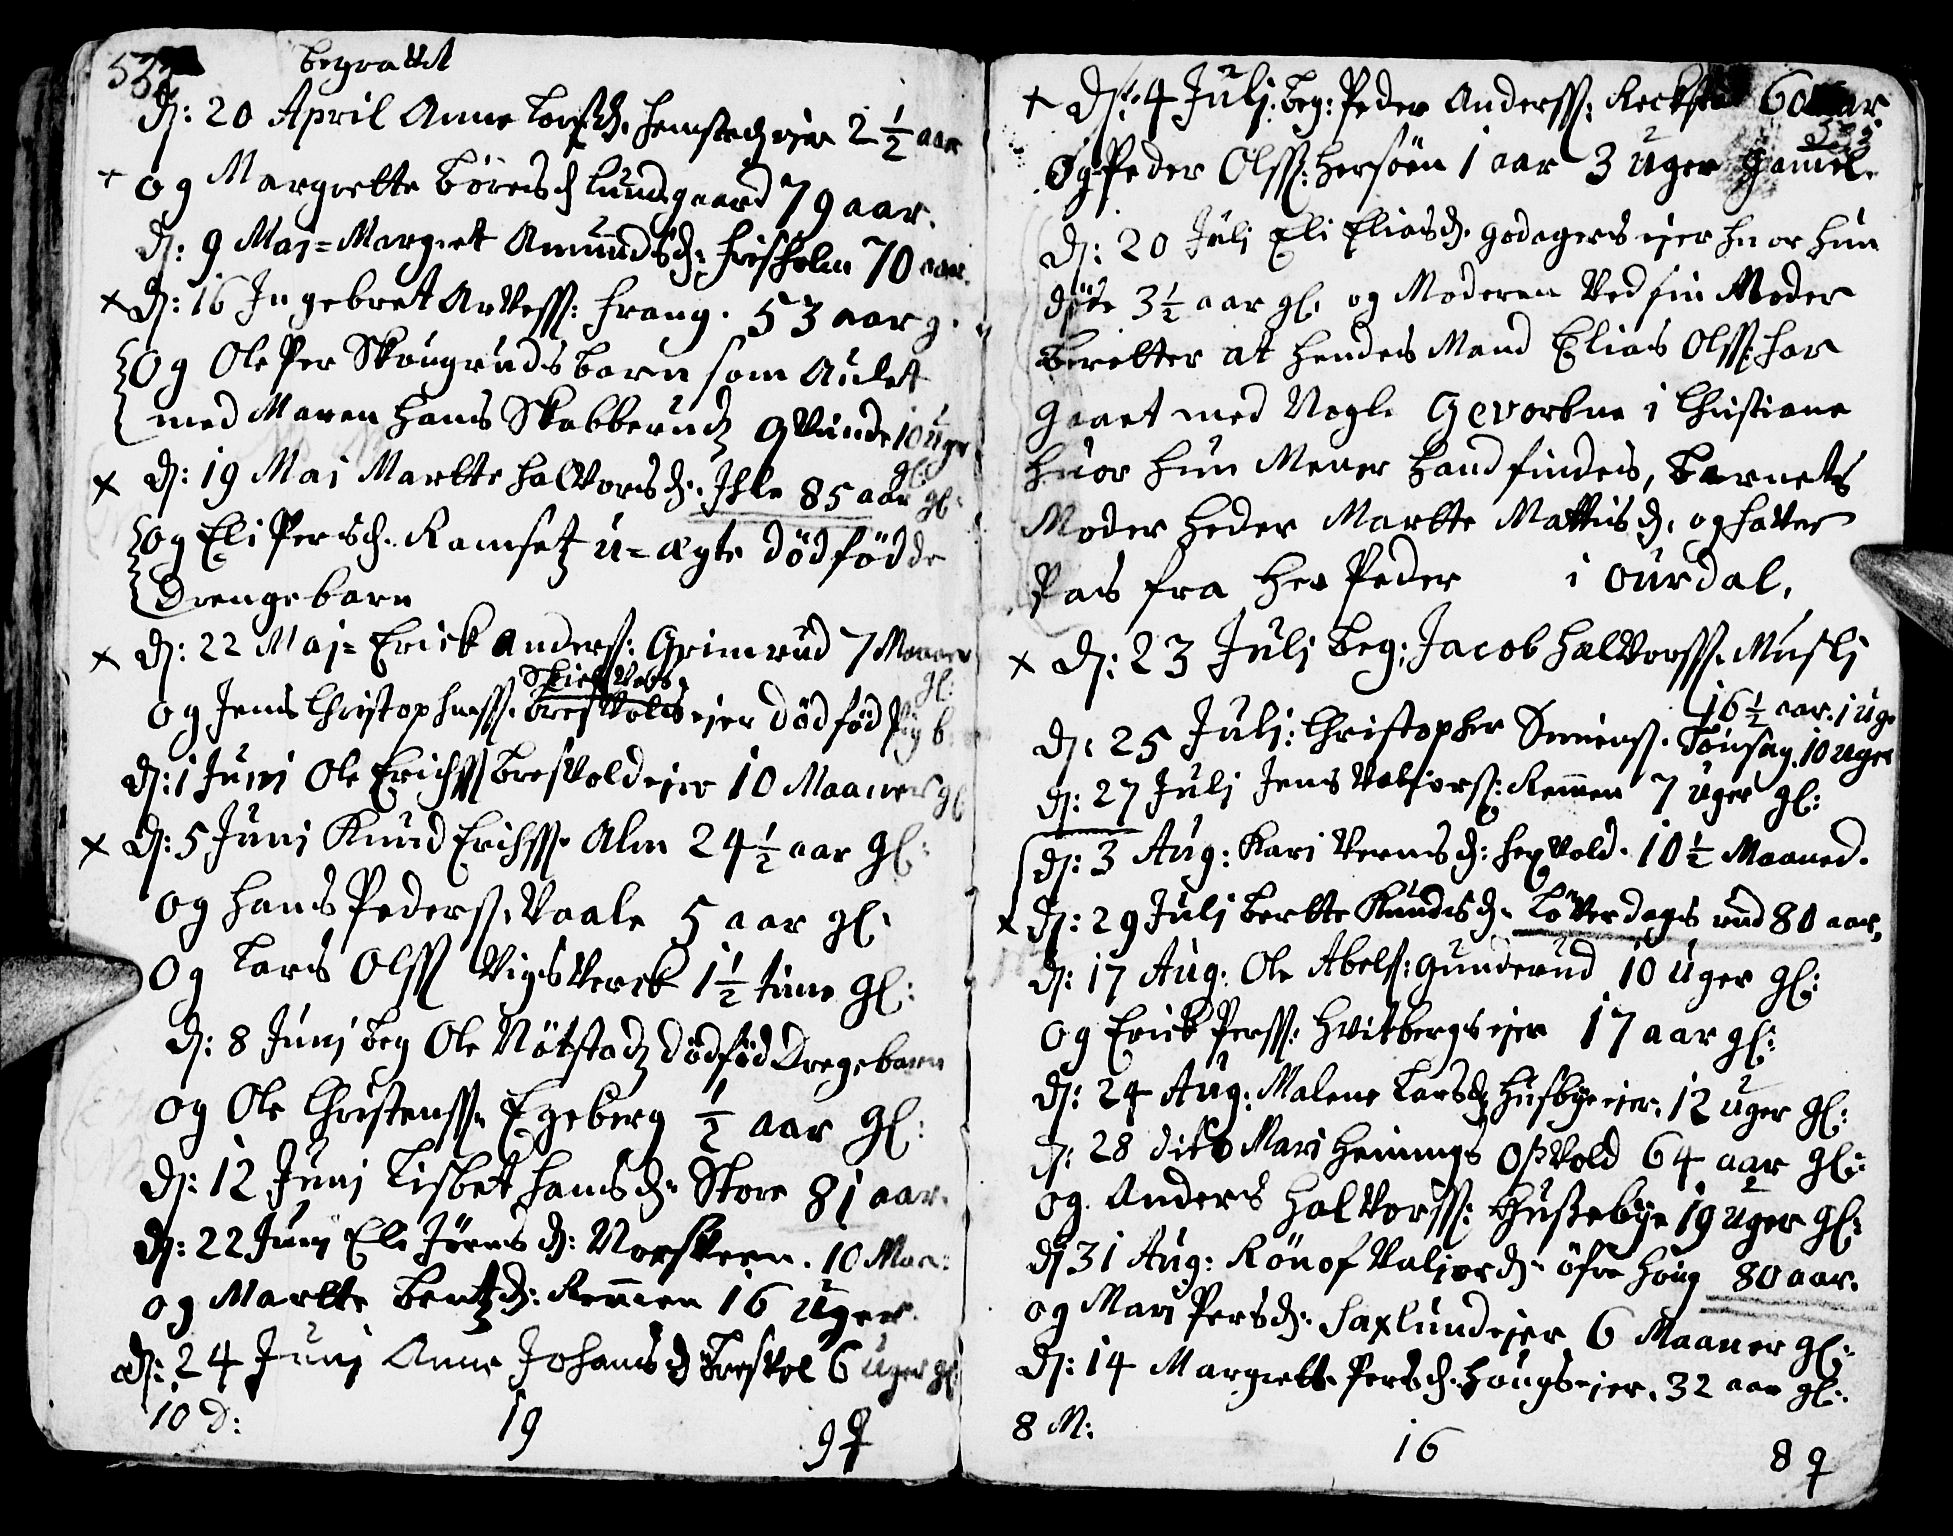 532
begravet
D: 20 April Anne Larsd. hemstedejer 2 1/2 aar
+ og Margrette Børesd Lundgaard 79 aar.
D: 9 Maj = Margret Amundsd: frisholm 70 aar.
x D: 16 Ingebret Arvess: frang. 53 aar g.
og Ole Per Skougruds barn som Aulet
med Maren Hans Skabberudz Qvinde 10 Uge
gl:
x D: 19 Maj Martte Halvorsd. Ihle 85 aar gl:
og Eli Persd. Ramsetz u=ægte dødfødde
Drengebarn
x D: 22 Maj = Erick Anders: Grimrud 7 Maaner
gl:
og Jens Christophersss. bresvoldsejer dødfød Pigb
D: 1 Junj Ole Erichss bresvoldejer 10 Maaner gl
x D: 5 Junj Knud Erichsss. Alm 24 1/2 aar gl:
og Hans Pederss. Vaale 5 aar gl.
Og Lars Olsss Vigsverck 1 1/2 time gl:
D: 8 Junj beg Ole Nøtstadz dødfød Dregebarn
og Ole Christensss. Egeberg 1/2 aar gl:
D: 12 Junj Lisbet Hansd. Store 81 aar.
D: 22 Junj Eli Jørensd: Norskeen. 10 Maa:
og Martte bentzd: Remmen 16 Uger.
D: 24 Junj Anne Johansd bresvol 6 Uger gl:
10 D: 19 9 ♀
+ D: 4 Julj: beg: Peder Andersss: Reckstad 60 aar.
533
Og Peder Olsss: Hersøen 1 aar 3 Uger gamel.
D: 20 Julj Eli Eliasd. godagers ejer hvor hun
døde 3 1/2 aar gl. og Moderen Ved sin Moder
beretter at hendes Mand Elias Olsss: har
gaaet med Nogle Gevorbne i Christiane
huor hun Mener hand findes, barnets
Moder heder Martte Mattisd. og hatter
Pas fra Her Peder i Ourdal.
x D: 23 Julj beg: Jacob Halvorsss. Muslj
16 1/2 aar. 1 Uge
D: 25 Julj: Christopher Simenss. Tønsag. 10 Uger
D: 27 Julj Jens Valfiorss: Remmen 7 Uger gl:
D: 3 Aug: Kari Vernsd: hexvold. 10 1/2 Maaned.
x D: 29 Julj bertte Knudsd. Løverdagsrud 80 aar,
D: 17 Aug: Ole Abels: gunderud 10 Uger gl:
og Erick Persss: Hvitbergsejer 17 aar gl:
D: 24 Aug: Malene Larsd Husbyeejer. 12 Uger gl:
D: 28 dito Mari Hemings Opvold 64 aar gl:
og Anders Halvorsss: Hussebye 19 Uger gl:
D 31 Aug: Rønof Valjord. øfre Houg 80 aar.
og Mari Persd. Saxlundejer 6 Maaner gl:
D: 14 Margrett. Persd. Hougsejer. 32 aar gl:
8 M: 16 8 ♀